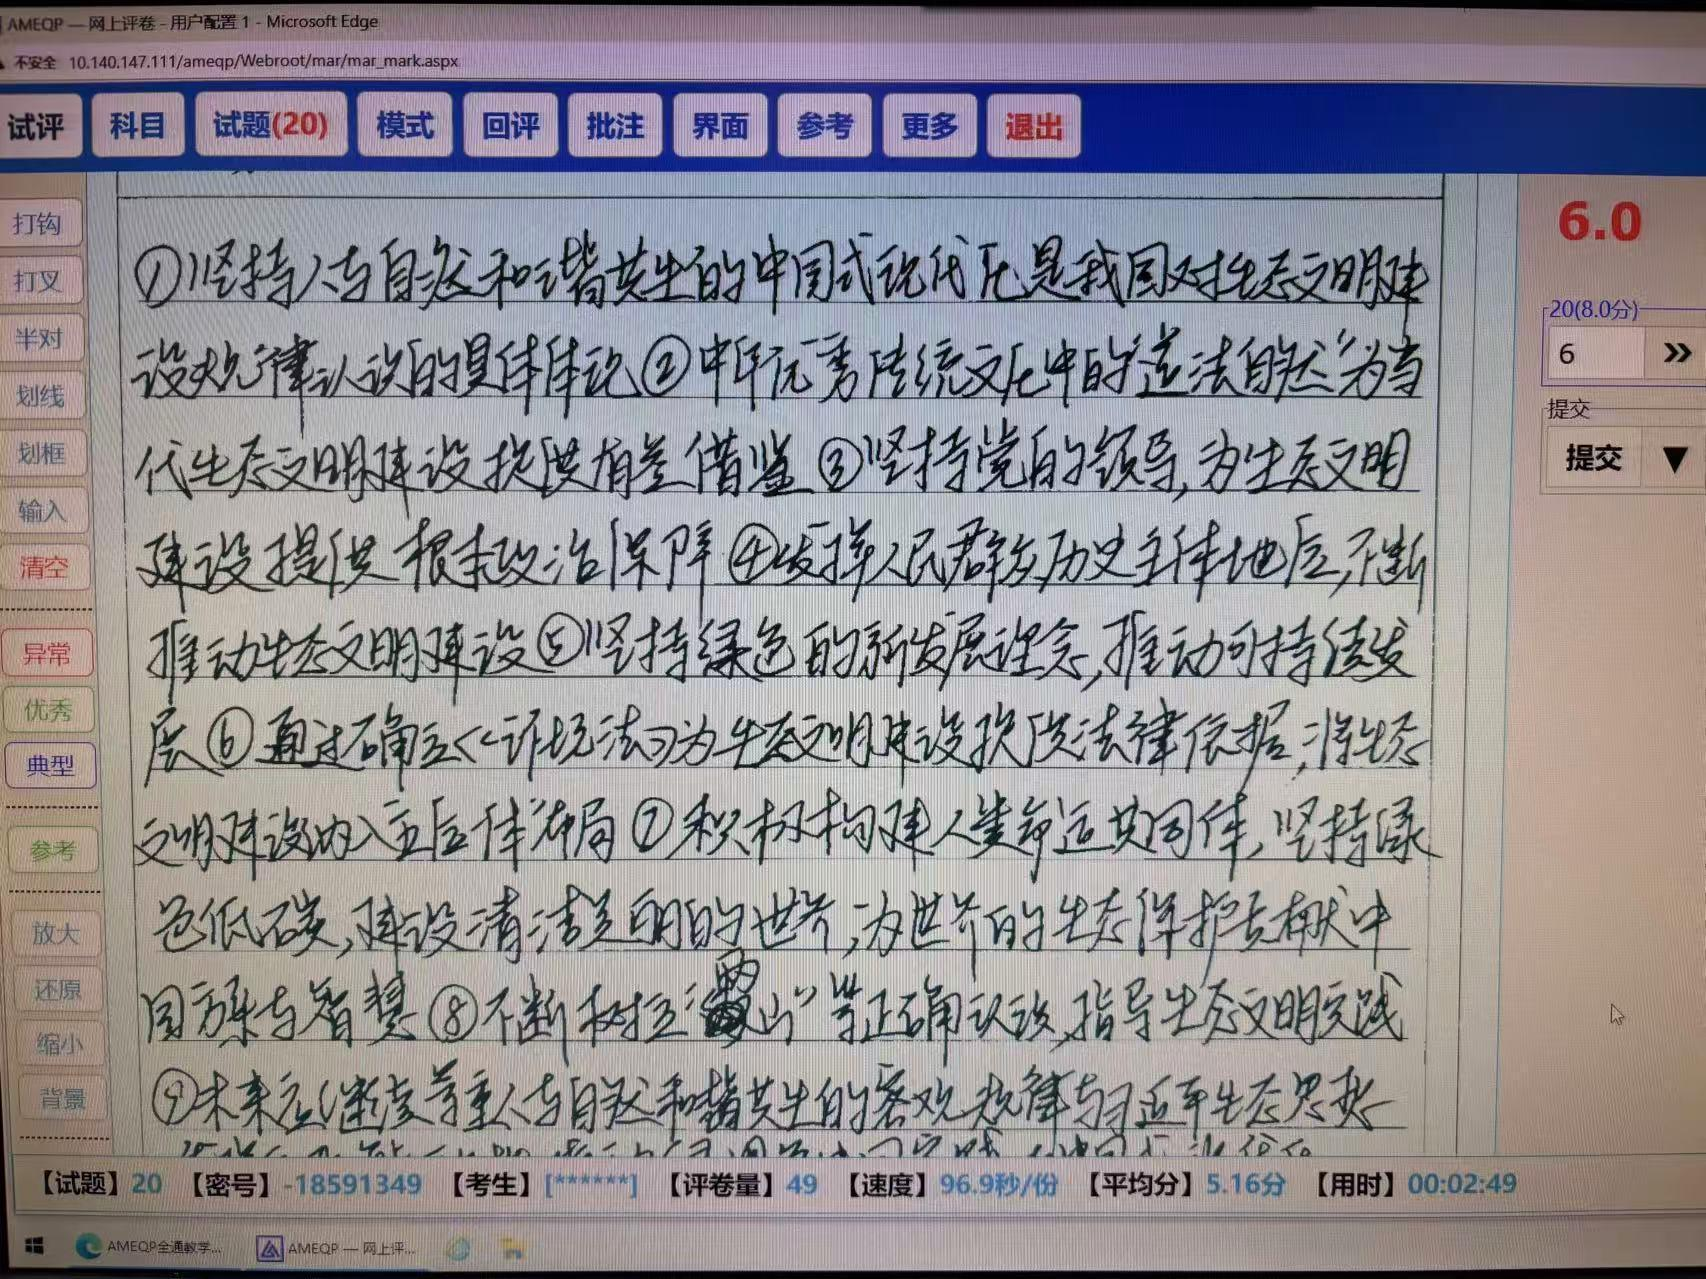 AMEQP — 网上评卷 - 用户配置 1 - Microsoft Edge
不安全 10.140.147.111/ameqp/Webroot/mar/mar_mark.aspx
试评 科目 试题(20) 模式 回评 批注 界面 参考 更多 退出
打钩
打叉
半对
划线
划框
输入
清空
异常
优秀
典型
参考
放大
还原
缩小
背景
①坚持人与自然和谐共生的中国式现代化是我国对生态文明建
设规律认识的具体体现②中华优秀传统文化中的“道法自然”为当
代生态文明建设提供有益借鉴③坚持党的领导,为生态文明
建设提供根本政治保障④发挥人民群众历史主体地位,不断
推动生态文明建设⑤坚持绿色的新发展理念,推动可持续发
展⑥通过确立《环境法》为生态文明建设提供法律依据,将生态
文明建设纳入五位一体布局⑦积极构建人类命运共同体,坚持绿
色低碳,建设清洁美丽的世界,为世界的生态保护贡献中
国方案与智慧⑧不断树立“两山”等正确认识,指导生态文明实践
⑨未来应继续尊重人与自然和谐共生的客观规律与习近平生态思想
6.0
20(8.0分)
6 »
提交
提交 ▼
【试题】20 【密号】-18591349 【考生】[******] 【评卷量】49 【速度】96.9秒/份 【平均分】5.16分 【用时】00:02:49
AMEQP全通教学... AMEQP — 网上评...